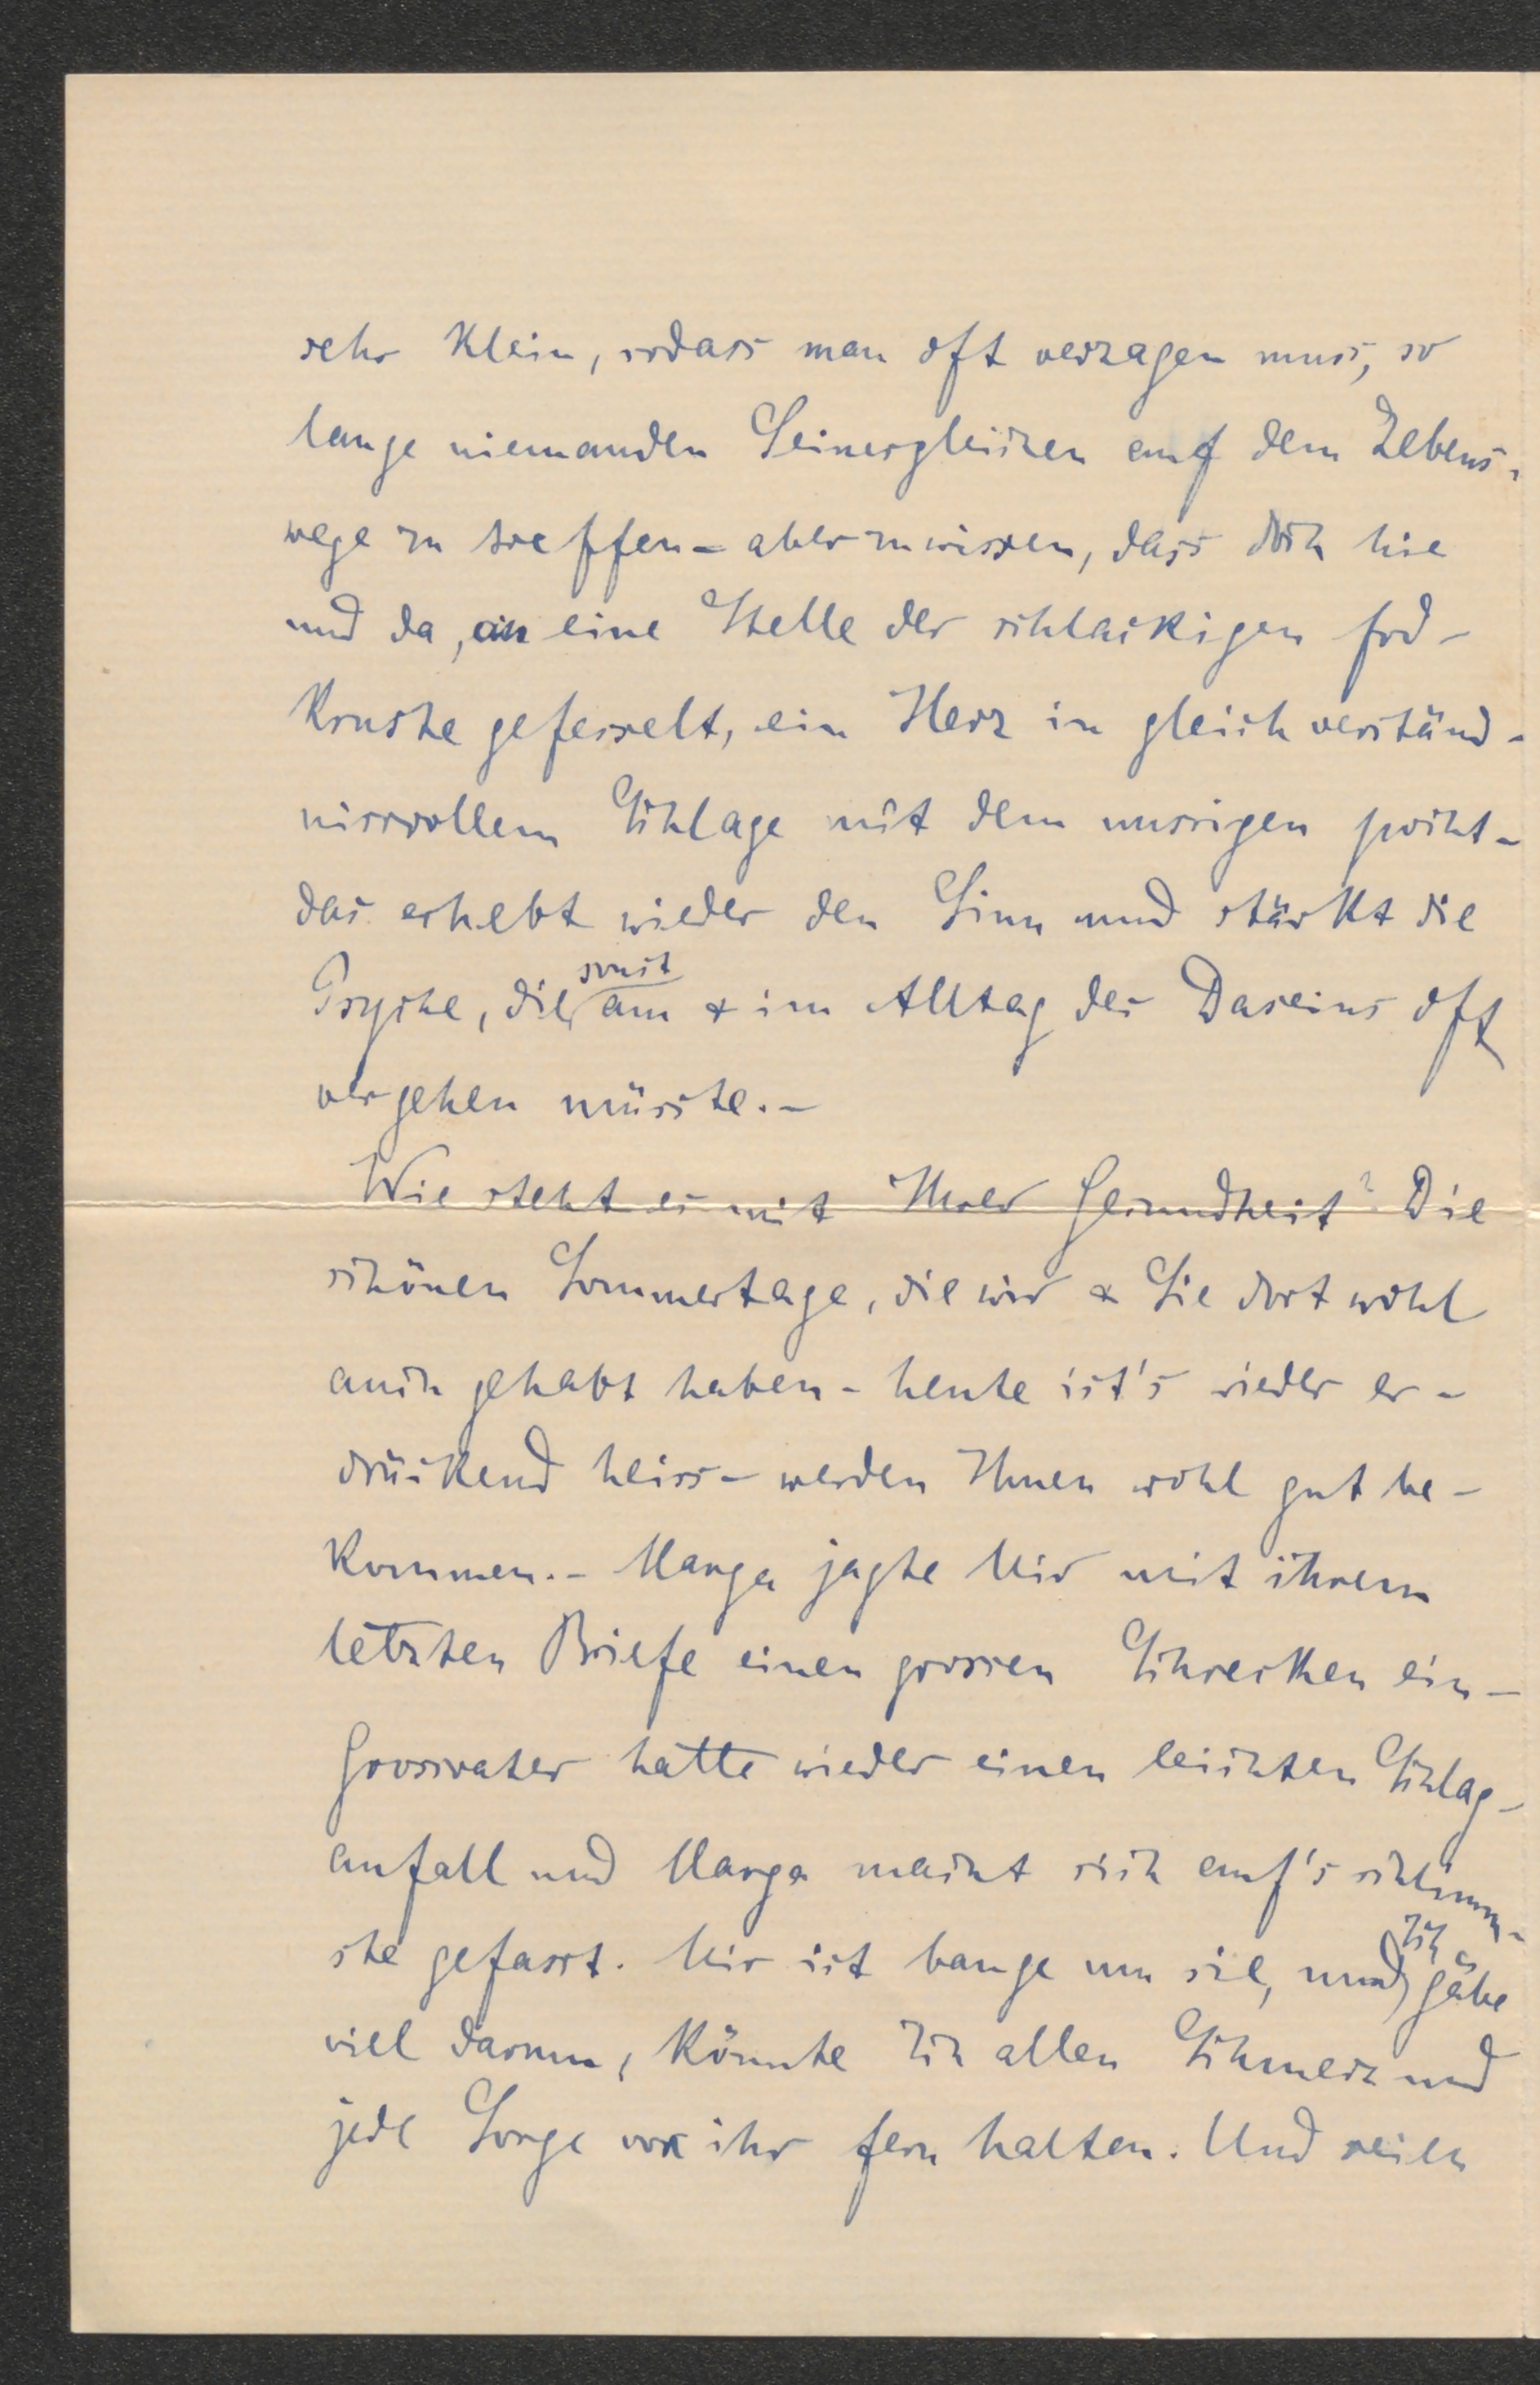 sehr klein, sodass man oft verzagen muss, so
lange niemanden Seinesgleichen auf dem Lebens-
wege zu treffen - aber zu wissen, dass doch hie
und da, an eine Stelle der schlackigen Erd-
kruste gefesselt, ein Herz in gleich verständ-
nissvollem Schlage mit dem unsrigen pocht -
das erhebt wieder den Sinn und stärkt die
Psyche, die sonst am & im Alltag des Daseins oft
vergehen müsste. -
Wie steht es mit Ihrer Gesundheit? Die
schönen Sommertage, die wir & Sie dort wohl
auch gehabt haben - heute ist's wieder er-
drückend heiss - werden Ihnen wohl gut be-
kommen. - Marga jagte Mir mit ihrem
letzten Briefe einen grossen Schrecken ein -
Grossvater hatte wieder einen leichten Schlag-
anfall und Marga macht sich auf's schlimm-
ste gefasst. Mir ist bange um sie, und Ich gäbe
viel darum, könnte Ich allen Schmerz und
jede Sorge von ihr fern halten. Und seien